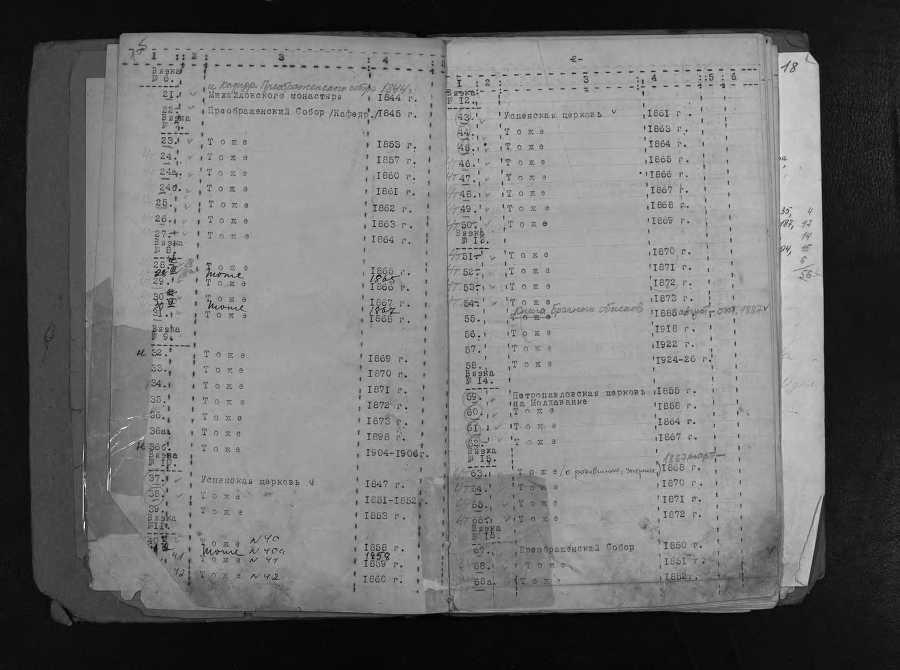 1 2 3 4
Вязка
№ 6.
и кафедр. Преображенского собора 1844 г.
21. Михайловского монастыря 1844 г.
22. Преображенский Собор /Кафедр./ 1845 г.
Вязка
№ 7.
23. Тоже 1853 г.
24. Тоже 1857 г.
24а. Тоже 1860 г.
24б. Тоже 1861 г.
25. Тоже 1862 г.
26. Тоже 1863 г.
27. Тоже 1864 г.
Вязка
№ 8.
28. Тоже 1866 г.
Тоже 1865
29. Тоже 1866 г.
30. Тоже 1867 г.
Тоже 1867
31. Тоже 1868 г.
Вязка
№ 9.
32. Тоже 1869 г.
33. Тоже 1870 г.
34. Тоже 1871 г.
35. Тоже 1872 г.
36. Тоже 1873 г.
36а. Тоже 1898 г.
36б. Тоже 1904-1906г.
Вязка
37. Успенская церковь 1847 г.
38. Тоже 1851-1852
39. Тоже 1853 г.
Вязка
№ 11.
Тоже N 40 1858 г.
Тоже N 40а 1858
41 Тоже N 41 1859 г.
42 Тоже N 42 1860 г.
-2-
1 2 3 4 5 6
Вязка
№ 12.
43. Успенская церковь 1861 г.
44. Тоже 1863 г.
45. Тоже 1864 г.
46. Тоже 1865 г.
47. Тоже 1866 г.
48. Тоже 1867 г.
49. Тоже 1868 г.
50. Тоже 1869 г.
Вязка
№ 13.
51. Тоже 1870 г.
52. Тоже 1871 г.
53. Тоже 1872 г.
54. Тоже 1873 г.
Книга брачных обысков
55. Тоже 1885
56. Тоже 1918 г.
57. Тоже 1922 г.
58. Тоже 1924-26 г.
Вязка
№ 14.
59. Петропавловская церковь 1855 г.
на Молдаванке
60. Тоже 1856 г.
61. Тоже 1864 г.
62. Тоже 1867 г.
Вязка
№ 15.
63. Тоже /о рождении, умерших/ 1868 г.
64. Тоже 1870 г.
65. Тоже 1871 г.
66. Тоже 1872 г.
Вязка
67. Преображенский Собор 1850 г.
68. Тоже 1851 г.
68а. Тоже 1852г.
18